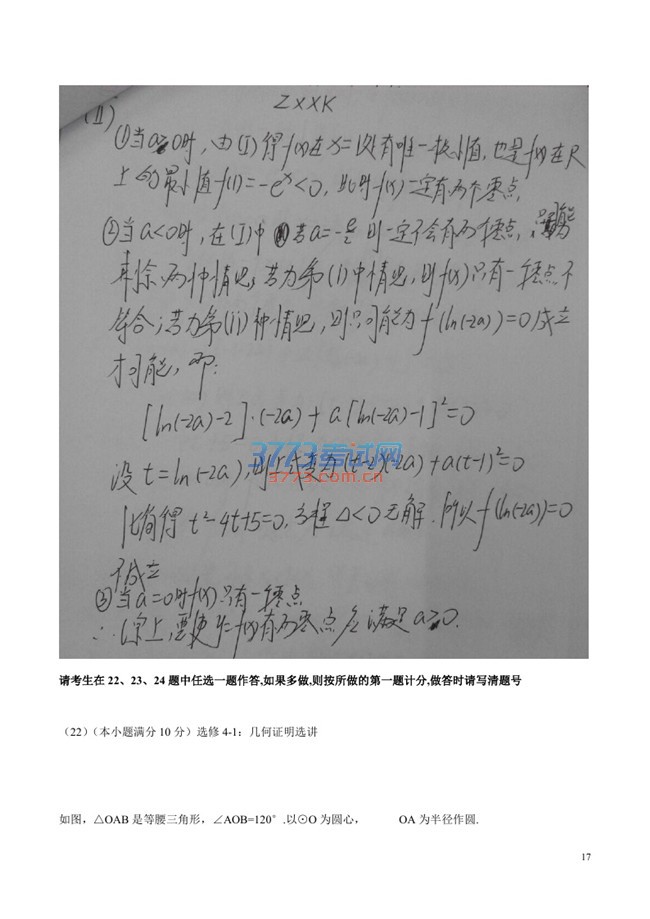 ZXXK
(II)
①当a≥0时,由(I)得f(x)在x=1处有唯一极小值,也是f(x)在R
上的最小值f(1)=-e^x<0,此时f(x)一定有两个零点,
②当a<0时,在(I)中若a=-e/2时一定不会有两个零点,只能
来综两种情况,若为第(i)中情况,则f(x)只有一零点不
符合;若为第(ii)种情况,则只可能为f(ln(-2a))=0成立
才可能,即:
[ln(-2a)-2]·(-2a)+a[ln(-2a)-1]²=0
设t=ln(-2a),则上式变为(t-2)(-2a)+a(t-1)²=0
化简得t²-4t+5=0,方程Δ<0无解.所以f(ln(-2a))=0
不成立
③当a=0时f(x)只有一零点
∴综上,要使y=f(x)有两零点应满足a>0.
3773考试网
3773.com.cn
请考生在 22、23、24 题中任选一题作答,如果多做,则按所做的第一题计分,做答时请写清题号
(22)(本小题满分 10 分)选修 4-1:几何证明选讲
如图,△OAB 是等腰三角形,∠AOB=120°.以⊙O 为圆心, OA 为半径作圆.
17